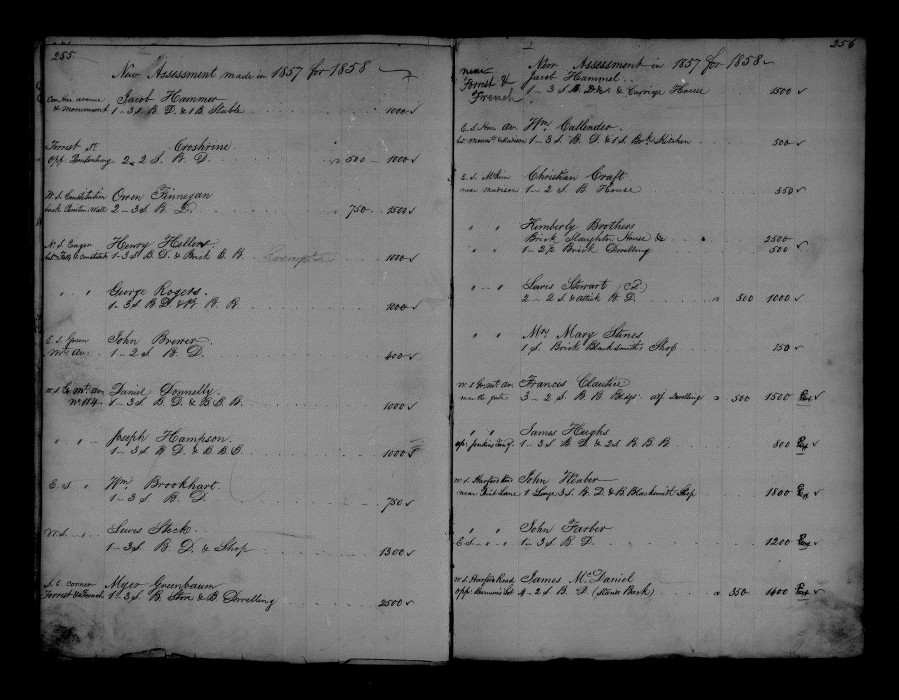 255.
New Assessment made in 1857 for 1858
Cor Har avenue Jacob Hammer
& Monument 1-3 S B. D. & 1 B. Stable 1000
Forrest St. Croshrine
Opp. 2-2 S. B. D. a 500 1000
W. S. Constitution Owen Finnegan
back Wall 2-3 S B. D. a 750 1500
N. S. Eager Henry Hellers
bet Falls & Constituti 1-3 S B. D. & Brick B. B. 1000
" " George Rogers
1-3 S B D. & B. B. B. 1000
E. S. Green John Brewer
Mt. Av. 1-2 S. B. D. 400
W. S. Gr. Mt. Av. Daniel Donnelly.
No. 114. 1-3 S B. D. & B. B. B. 1000
" " Joseph Hampson.
1-3 S B. D. & B. B. B. 1000
E. S. " Wm. Brookhart
1-3 S B. D. 750
W. S. " Lewis Stock
1-3 S B. D. & Shop 1300
S. E. corner Myer Greenbaum
Forrest & French 1-3 S. B. Store & B Dwelling 2500
256
New Assessment in 1857 for 1858
near Jacob Hammel
Forrest & 1-3 S B. D. & Carrige House 1500
French
E. S. Har. Av. Wm. Callender.
bet Monmt. & Madison 1-3 S. B. D. & 1 S. Bck. Kitchen 500
E. S. Christian Craft
near Madison 1-2 S B House 350
" " Kimberly Brothers
Brick Slaughter House & 2500
" " 1-2 S Brick Dwelling 500
" " Lewis Stewart (Cd)
2-2 S. & attick B. D. a 500 1000
" " Mrs. Mary Stines
1 S. Brick Blacksmith's Shop 150
W. S. Grant Av. Francis Clautice
near the gate 3-2 S. B. B. Bldgs. Dwelling a 500 1500 Ex
" " James Hughs
opp. Jenkins 1-3 S. B. D. & 2 S. B. B. B. 800 Ex
W. S. Harford Rd. John Heaber
near Lane 1 Large 3 S. B. D. & B. Blacksmith Shop 1800 Ex
" " John Farber
E. S. " " 1-3 S. B D. 1200 Ex
W. S. Harford Road James McDaniel
Opp. Lot 4-2 S. B. D. (Stands Back) a 350 1400 Ex